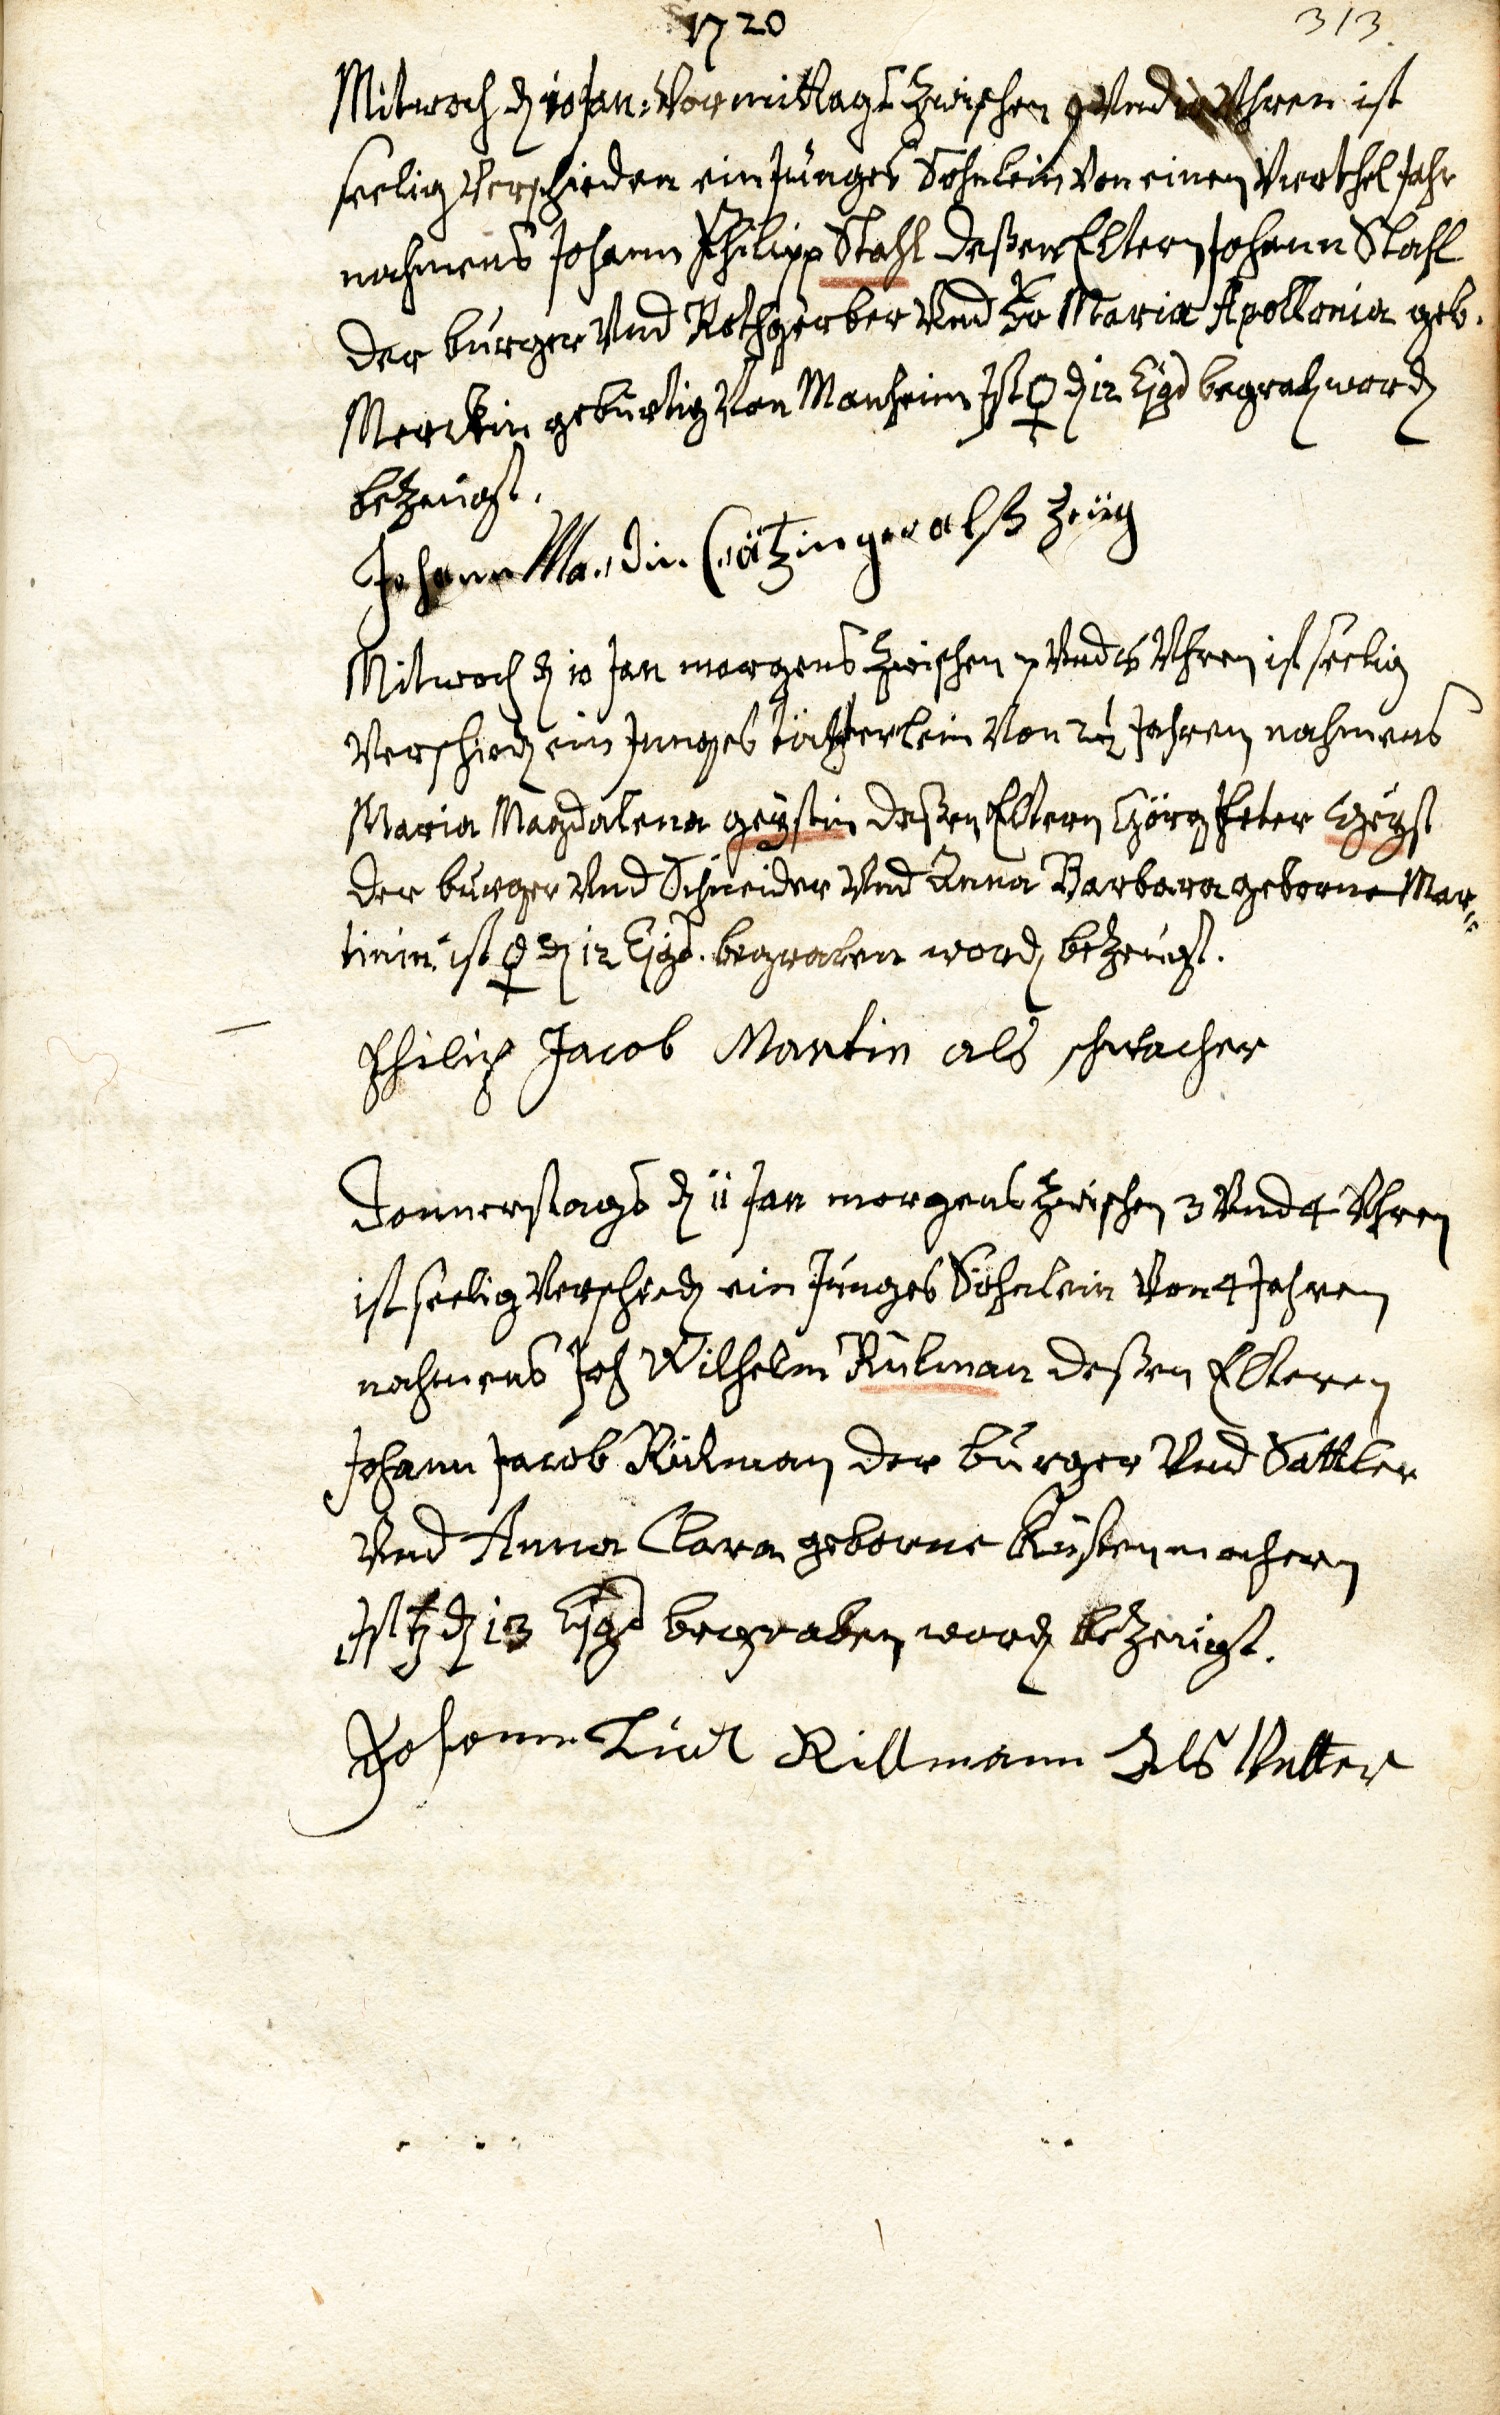 1720
313.
Mitwoch d 10 Jan: Vormittags zwischen 9 Und 10 Uhren ist
seelig Verschieden ein Junges Söhnlein Von einem Vierthel Jahr
nahmens Johann Philipp Stahl deßen Eltern Johann Stahl
der burger Und Rothgerber Und Maria Apollonia geb.
Merckin gebürtig Von Manheim Ist ♀ d 12 Ejgd begrab word
bezeugt.
Johann Mardin als Zeüg
Mitwoch d 10 Jan morgens zwischen Und Uhren ist seelig
Verschied ein Junges töchterlein Von 2½ Jahren nahmens
Maria Magdalena geystin deßen Eltern Görg Peter Geyst
der burger Und Schneider Und Anna Barbara geborne Mar=
tinin ist ♀ d 12 Ejgd. begraben word bezeugt.
Philip Jacob Martin als schwacher
Donnerstags d 11 Jan morgens zwischen 3 Und 4 Uhren
ist seelig Verschied ein Junges Söhnlein Von 4 Jahren
nahmens Joh Wilhelm Rülman deßen Elteren
Johann Jacob Rülman der burger Und Sattler
Und Anna Clara geborne Küstenmachern
Ist ♄ d 13 Ejgd begraben word bezeugt.
Johann Rillmann Als Vatter